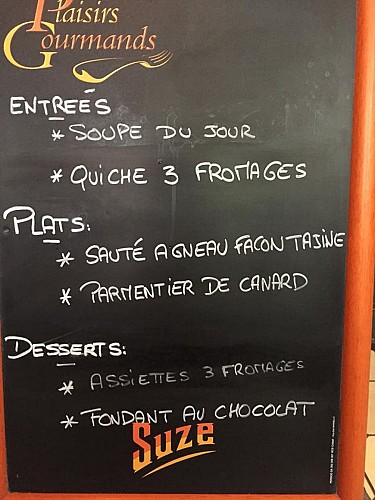 Plaisirs
Gourmands
ENTREES
* SOUPE DU JOUR
* QUICHE 3 FROMAGES
PLATS:
* SAUTÉ AGNEAU FACON TAJINE
* PARMENTIER DE CANARD
DESSERTS:
* ASSIETTES 3 FROMAGES
* FONDANT AU CHOCOLAT
Suze